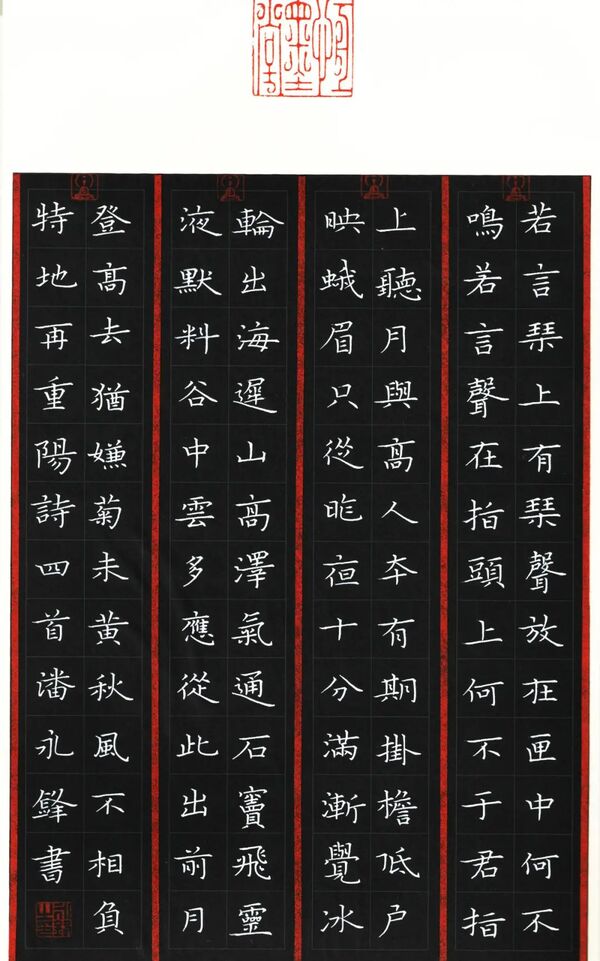 若言琹上有琹聲放在匣中何不
鳴若言聲在指頭上何不于君指
上聽月與高人夲有期掛檐低戶
映蛾眉只從昨夜十分滿漸覺冰
輪出海遲山高澤氣通石竇飛靈
液默料谷中雲多應從此出前月
登高去猶嫌菊未黃秋風不相負
特地再重陽詩四首潘永鋒書